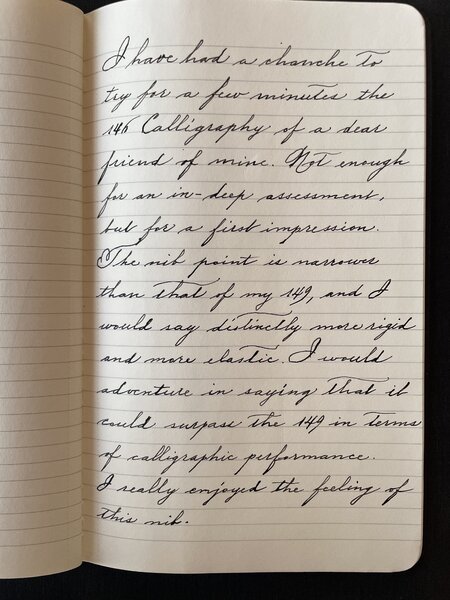 I have had a chanche to
try for a few minutes the
146 Calligraphy of a dear
friend of mine. Not enough
for an in-deep assessment,
but for a first impression.
The nib point is narrower
than that of my 149, and I
would say distinctly more rigid
and more elastic. I would
adventure in saying that it
could surpass the 149 in terms
of calligraphic performance.
I really enjoyed the feeling of
this nib.